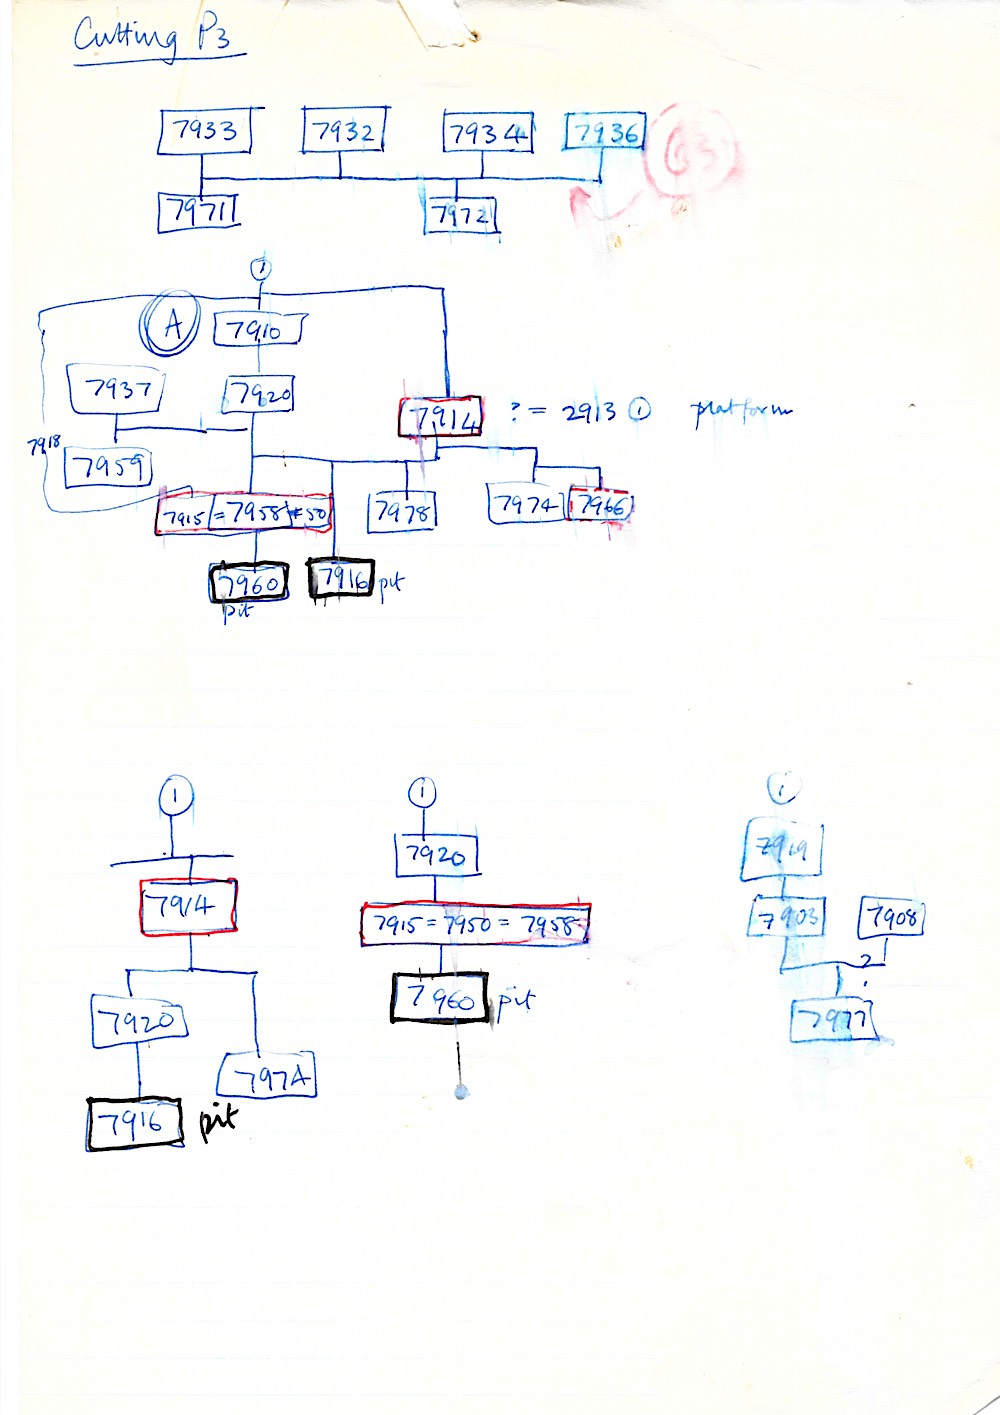 Cutting P3
7933 7932 7934 7936
7971 7972
1
A 7910
7937 7920
7914 ? = 2913 1 platform
7918
7959
7915 = 7958 = 50 7978 7974 7966
7960 7916 pit
pit
1 1 1
7920 7919
7914 7915 = 7950 = 7958 7903 7908
?
7920 7960 pit 7977
7974
7916 pit